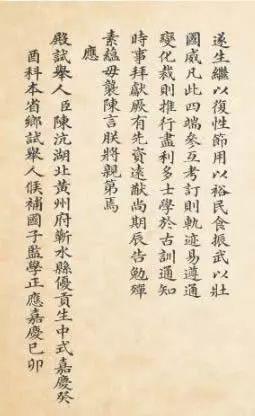 遂生繼以復性節用以裕民食振武以壯
國威凡此四端參互考訂則軌迹易遵通
變化裁則推行盡利多士學於古訓通知
時事拜獻厥有先資遠猷尚期辰告勉殫
素蘊毋襲陳言朕將親第焉
應
殿試舉人臣陳沆湖北黃州府蘄水縣優貢生中式嘉慶癸
酉科本省鄉試舉人候補國子監學正應嘉慶己卯